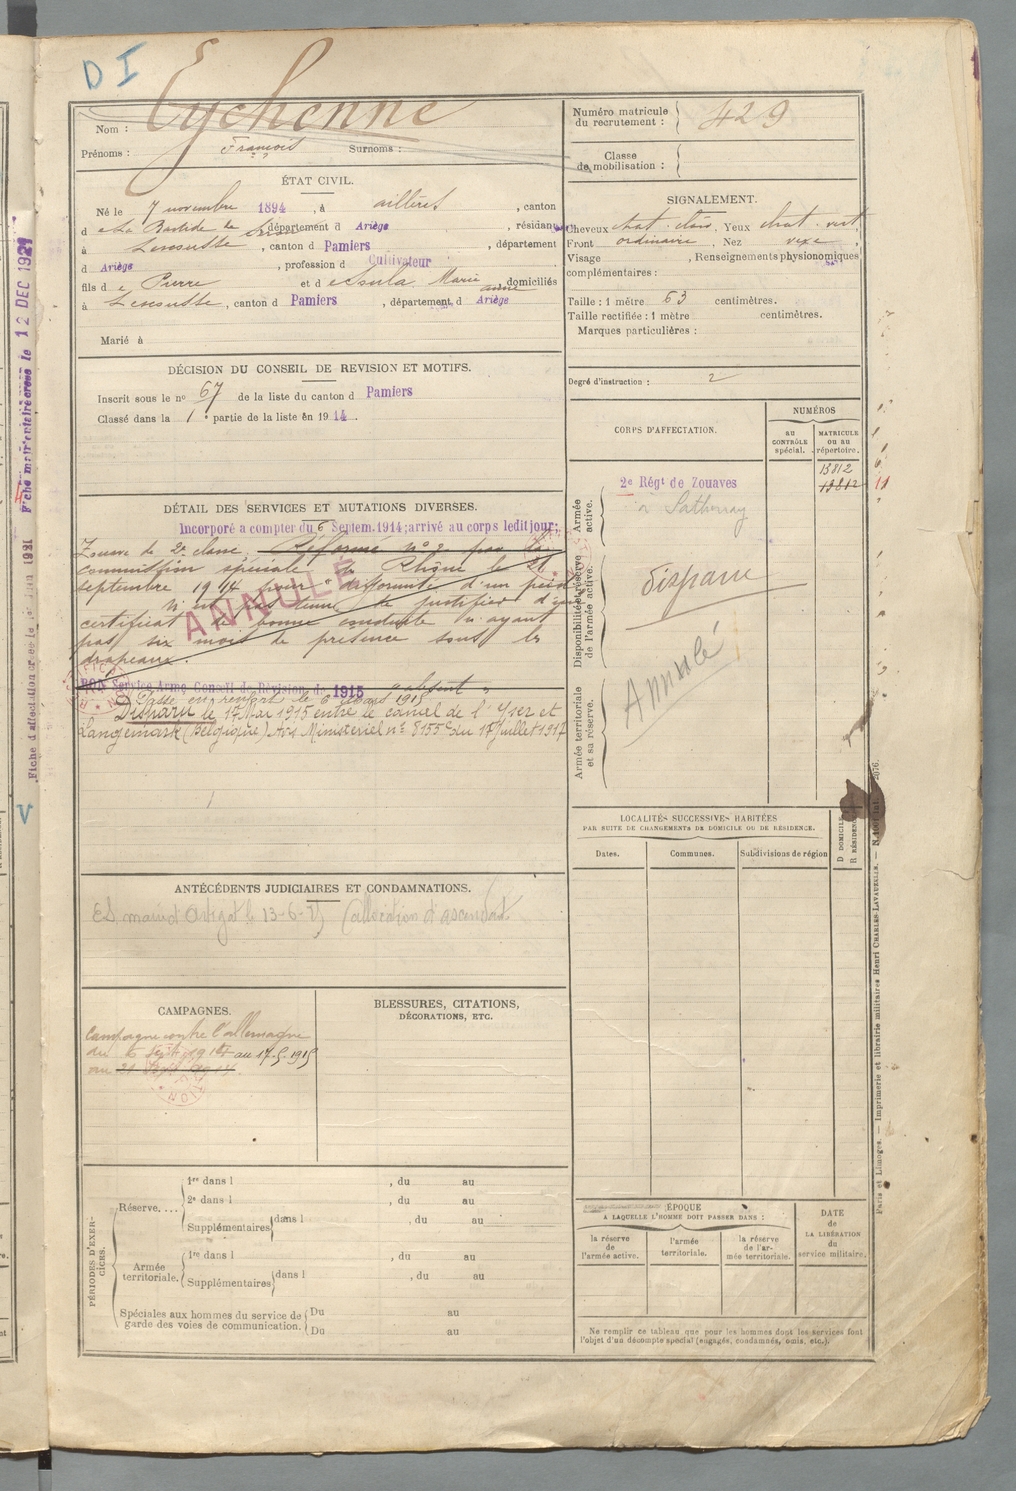 D I
Nom : Eychenne
Prénoms : François Surnoms :
Numéro matricule
du recrutement : 429
Classe
de mobilisation :
ÉTAT CIVIL.
Né le 7 novembre 1894, à aillères, canton
d e La Bastide de département d Ariège, résidant
à Lescousse, canton d Pamiers, département
d Ariège, profession d Cultivateur
fils d e Pierre et d e Soula, Marie anne domiciliés
à Lescousse, canton d Pamiers, département d Ariège
Marié à
SIGNALEMENT.
Cheveux chat. clairs, Yeux chat. vert
Front ordinaire, Nez vexe,
Visage , Renseignements physionomiques
complémentaires :
Taille : 1 mètre 63 centimètres.
Taille rectifiée : 1 mètre centimètres.
Marques particulières :
Degré d'instruction : 2
DÉCISION DU CONSEIL DE REVISION ET MOTIFS.
Inscrit sous le no 67 de la liste du canton d Pamiers
Classé dans la 1e partie de la liste en 1914.
CORPS D'AFFECTATION.
NUMÉROS
AU CONTRÔLE spécial.
MATRICULE ou au répertoire.
2e Régt de Zouaves
à Sathonay
13812
13812
Armée active.
Disponibilité et réserve de l'armée active.
disparu
Annulé
Armée territoriale et sa réserve.
DÉTAIL DES SERVICES ET MUTATIONS DIVERSES.
Incorporé a compter du 6 Septem.1914; arrivé au corps ledit jour;
Zouave de 2e classe. Réformé no 2 par la
commission spéciale du Rhône le 21
septembre 1914 pour difformité d'un pied
N'est pas tenu de justifier d'un
certificat de bonne conduite n'ayant
pas six mois de présence sous les
drapeaux.
ANNULÉ
BON Service Armé Conseil de Révision de 1915 "absent"
Passé en renfort le 6 mars 1915
Disparu le 17 Mai 1915 entre le canal de l'Yser et
Langemark (Belgique) Avis Ministériel no 8155 du 17 Juillet 1917
LOCALITÉS SUCCESSIVES HABITÉES
PAR SUITE DE CHANGEMENTS DE DOMICILE OU DE RÉSIDENCE.
Dates.
Communes.
Subdivisions de région
D DOMICILE
R RÉSIDENCE
ANTÉCÉDENTS JUDICIAIRES ET CONDAMNATIONS.
le 13-6- (allocation d'ascendant
CAMPAGNES.
Campagne contre l'allemagne
du 6 Sept. 1914 au 17-5-1915
au 21 Sept 1914.
BLESSURES, CITATIONS,
DÉCORATIONS, ETC.
PÉRIODES D'EXERCICES.
Réserve....
1re dans l , du au
2e dans l , du au
Supplémentaires dans l , du au
Armée territoriale.
1re dans l , du au
Supplémentaires dans l , du au
Spéciales aux hommes du service de
garde des voies de communication.
Du au
Du au
ÉPOQUE
A LAQUELLE L'HOMME DOIT PASSER DANS :
la réserve de l'armée active.
l'armée territoriale.
la réserve de l'armée territoriale.
DATE
de
LA LIBÉRATION
du
service militaire.
Ne remplir ce tableau que pour les hommes dont les services font
l'objet d'un décompte spécial (engagés, condamnés, omis, etc.).
Paris et Limoges. — Imprimerie et librairie militaires Henri CHARLES-LAVAUZELLE. —
Fiche matriculaire créée le 12 DEC 1921
V